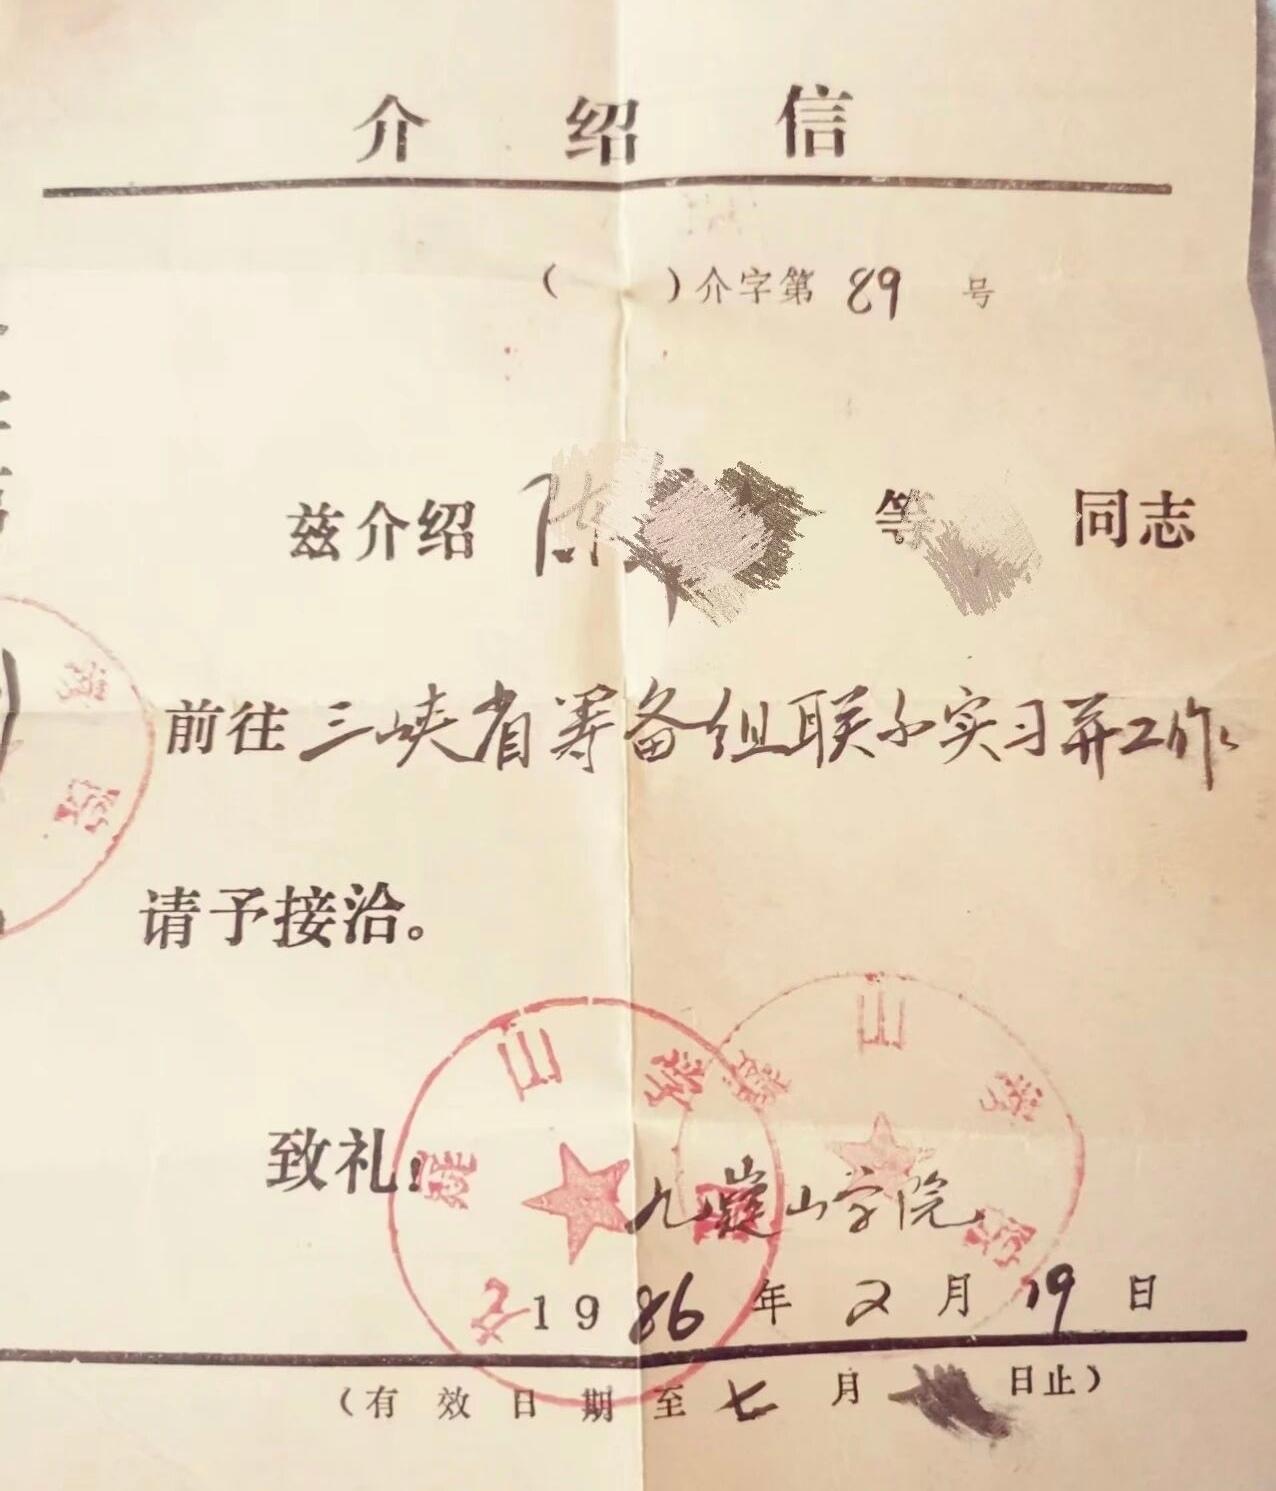 介绍信
( )介字第 89 号
兹介绍 陈 等 同志
前往 三峡省筹备组联系实习并工作
请予接洽。
致礼!
九嶷山学院
1986年2月19日
(有效日期至七月 日止)
九嶷山学院
嶷山学院
学院